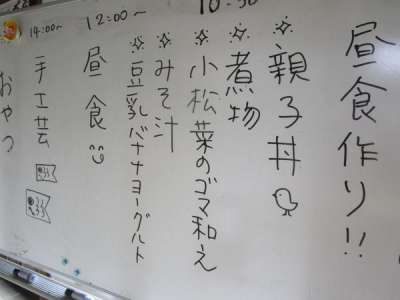 10:30
昼食作り!!
親子丼
煮物
小松菜のゴマ和え
みそ汁
豆乳バナナヨーグルト
12:00～
昼食
14:00～
手工芸
おやつ